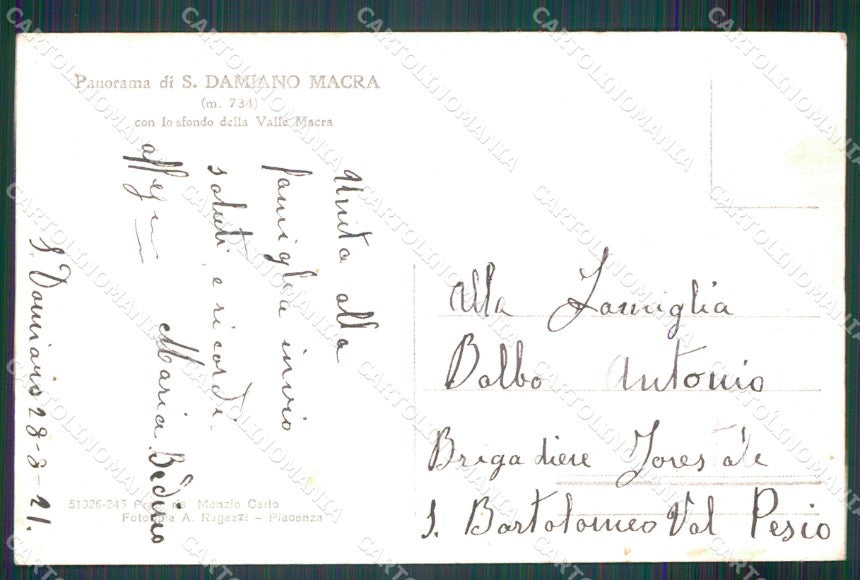 Panorama di S. DAMIANO MACRA
(m. 734)
con lo sfondo della Valle Macra
Unita alla
famiglia invio
saluti e ricordi
affez
Maria Bedino
S. Damiano 28-3-
Alla Famiglia
Balbo Antonio
Brigadiere Forestale
S. Bartolomeo Val Pesio
51026-245 Menzio Carlo
Fototipia A. Ragazzi - Piacenza
CARTOLINOMANIA